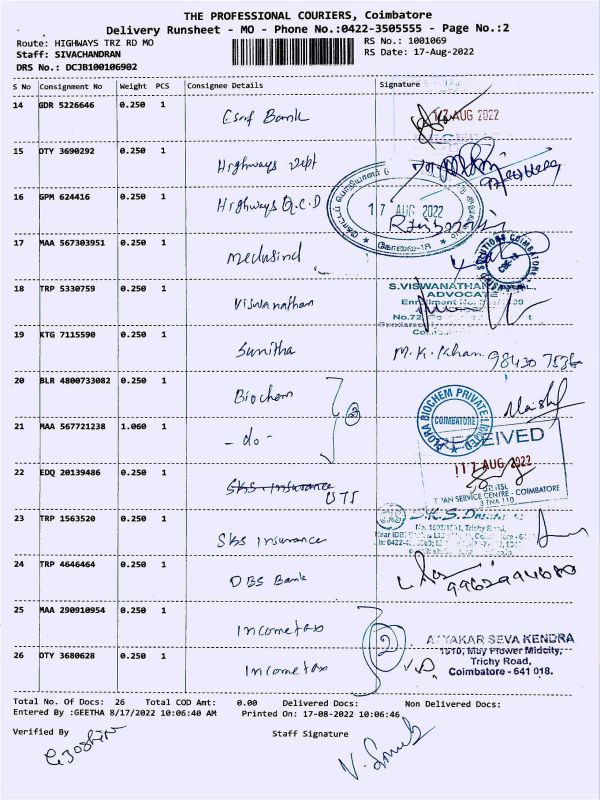 THE PROFESSIONAL COURIERS, Coimbatore
Delivery Runsheet - MO - Phone No.:0422-3505555 - Page No.:2
Route: HIGHWAYS TRZ RD MO
RS No.: 1001069
Staff: SIVACHANDRAN
RS Date: 17-Aug-2022
DRS No.: DCJB100106902
S No Consignment No Weight PCS Consignee Details Signature
14 GDR 5226646 0.250 1 Esaf Bank
17 AUG 2022
15 DTY 3690292 0.250 1 Highways Dept
16 GPM 624416 0.250 1 Highways Q.C.D
17 AUG 2022
17 MAA 567303951 0.250 1 Medusind
18 TRP 5330759 0.250 1 Viswanathan
S.VISWANATHAN
ADVOCATE
No.72
19 KTG 7115590 0.250 1 Sunitha M.K.Khan 984307536
20 BLR 4800733082 0.250 1 Biochem
FLORA BIOCHEM PRIVATE LIMITED
COIMBATORE
21 MAA 567721238 1.060 1 - do -
2
RECEIVED
17 AUG 2022
22 EDQ 20139486 0.250 1 SKS Insurance
UTI
PAN SERVICE CENTRE - COIMBATORE
23 TRP 1563520 0.250 1 SKS Insurance
Trichy Road,
24 TRP 4646464 0.250 1 DBS Bank
25 MAA 290910954 0.250 1 Incometax
2
26 DTY 3680628 0.250 1 Incometax
AYYAKAR SEVA KENDRA
1510, May Flower Midcity,
Trichy Road,
Coimbatore - 641 018.
Total No. Of Docs: 26 Total COD Amt: 0.00 Delivered Docs: Non Delivered Docs:
Entered By :GEETHA 8/17/2022 10:06:40 AM Printed On: 17-08-2022 10:06:46
Verified By Staff Signature